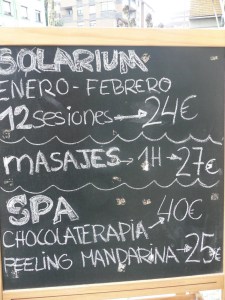 SOLARIUM
ENERO - FEBRERO
12 sesiones → 24€
MASAJES → 1H → 27€
SPA → 40€
CHOCOLATERAPIA
PEELING MANDARINA → 25€